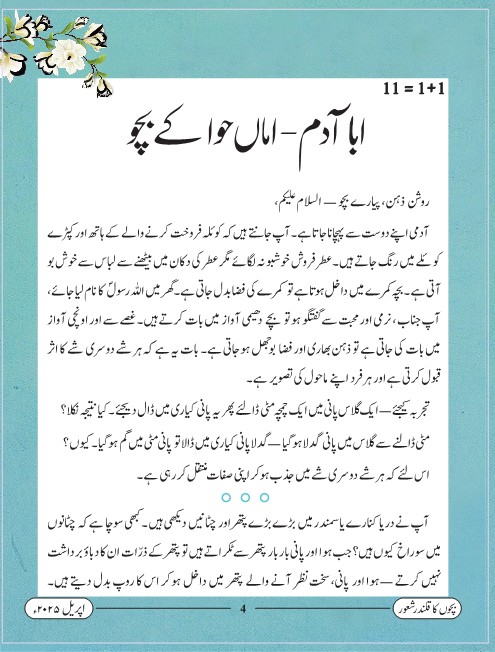 11 = 1+1
ابا آدم – اماں حوا کے بچو
روشن ذہن، پیارے بچو — السلام علیکم،
آدمی اپنے دوست سے پہچانا جاتا ہے۔ آپ جانتے ہیں کہ کوئلہ فروخت کرنے والے کے ہاتھ اور کپڑے
کوئلے میں رنگ جاتے ہیں۔ عطر فروش خوشبو نہ لگائے مگر عطر کی دکان میں بیٹھنے سے لباس سے خوش بو
آتی ہے۔ بچہ کمرے میں داخل ہوتا ہے تو کمرے کی فضا بدل جاتی ہے۔ گھر میں اللہ رسولؐ کا نام لیا جائے،
آپ جناب، نرمی اور محبت سے گفتگو ہو تو بچے دھیمی آواز میں بات کرتے ہیں۔ غصے سے اور اونچی آواز
میں بات کی جاتی ہے تو ذہن بھاری اور فضا بوجھل ہو جاتی ہے۔ بات یہ ہے کہ ہر شے دوسری شے کا اثر
قبول کرتی ہے اور ہر فرد اپنے ماحول کی تصویر ہے۔
تجربہ کیجئے — ایک گلاس پانی میں ایک چمچہ مٹی ڈالئے پھر یہ پانی کیاری میں ڈال دیجئے۔ کیا نتیجہ نکلا؟
مٹی ڈالنے سے گلاس میں پانی گدلا ہو گیا — گدلا پانی کیاری میں ڈالا تو پانی مٹی میں گم ہو گیا۔ کیوں؟
اس لئے کہ ہر شے دوسری شے میں جذب ہو کر اپنی صفات منتقل کر رہی ہے۔
آپ نے دریا کنارے یا سمندر میں بڑے بڑے پتھر اور چٹانیں دیکھی ہیں۔ کبھی سوچا ہے کہ چٹانوں
میں سوراخ کیوں ہیں؟ جب ہوا اور پانی بار بار پتھر سے ٹکراتے ہیں تو پتھر کے ذرّات ان کا دباؤ برداشت
نہیں کرتے — ہوا اور پانی، سخت نظر آنے والے پتھر میں داخل ہو کر اس کا روپ بدل دیتے ہیں۔
بچوں کا قلندر شعور
4
اپریل ۲۰۲۵ء